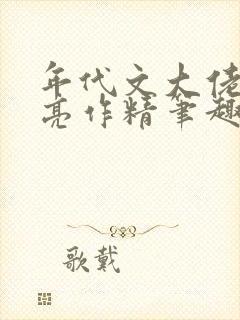 年代文大佬
亮作精笔趣
歌戴